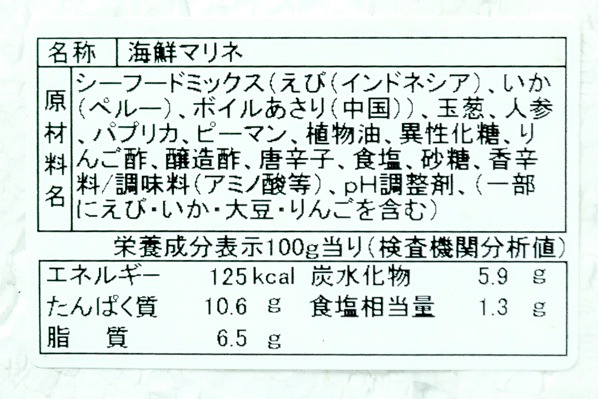 名称 海鮮マリネ
原材料名
シーフードミックス(えび(インドネシア)、いか
(ペルー)、ボイルあさり(中国))、玉葱、人参
、パプリカ、ピーマン、植物油、異性化糖、り
んご酢、醸造酢、唐辛子、食塩、砂糖、香辛
料/調味料(アミノ酸等)、pH調整剤、(一部
にえび・いか・大豆・りんごを含む)
栄養成分表示100g当り(検査機関分析値)
エネルギー 125kcal 炭水化物 5.9 g
たんぱく質 10.6 g 食塩相当量 1.3 g
脂質 6.5 g